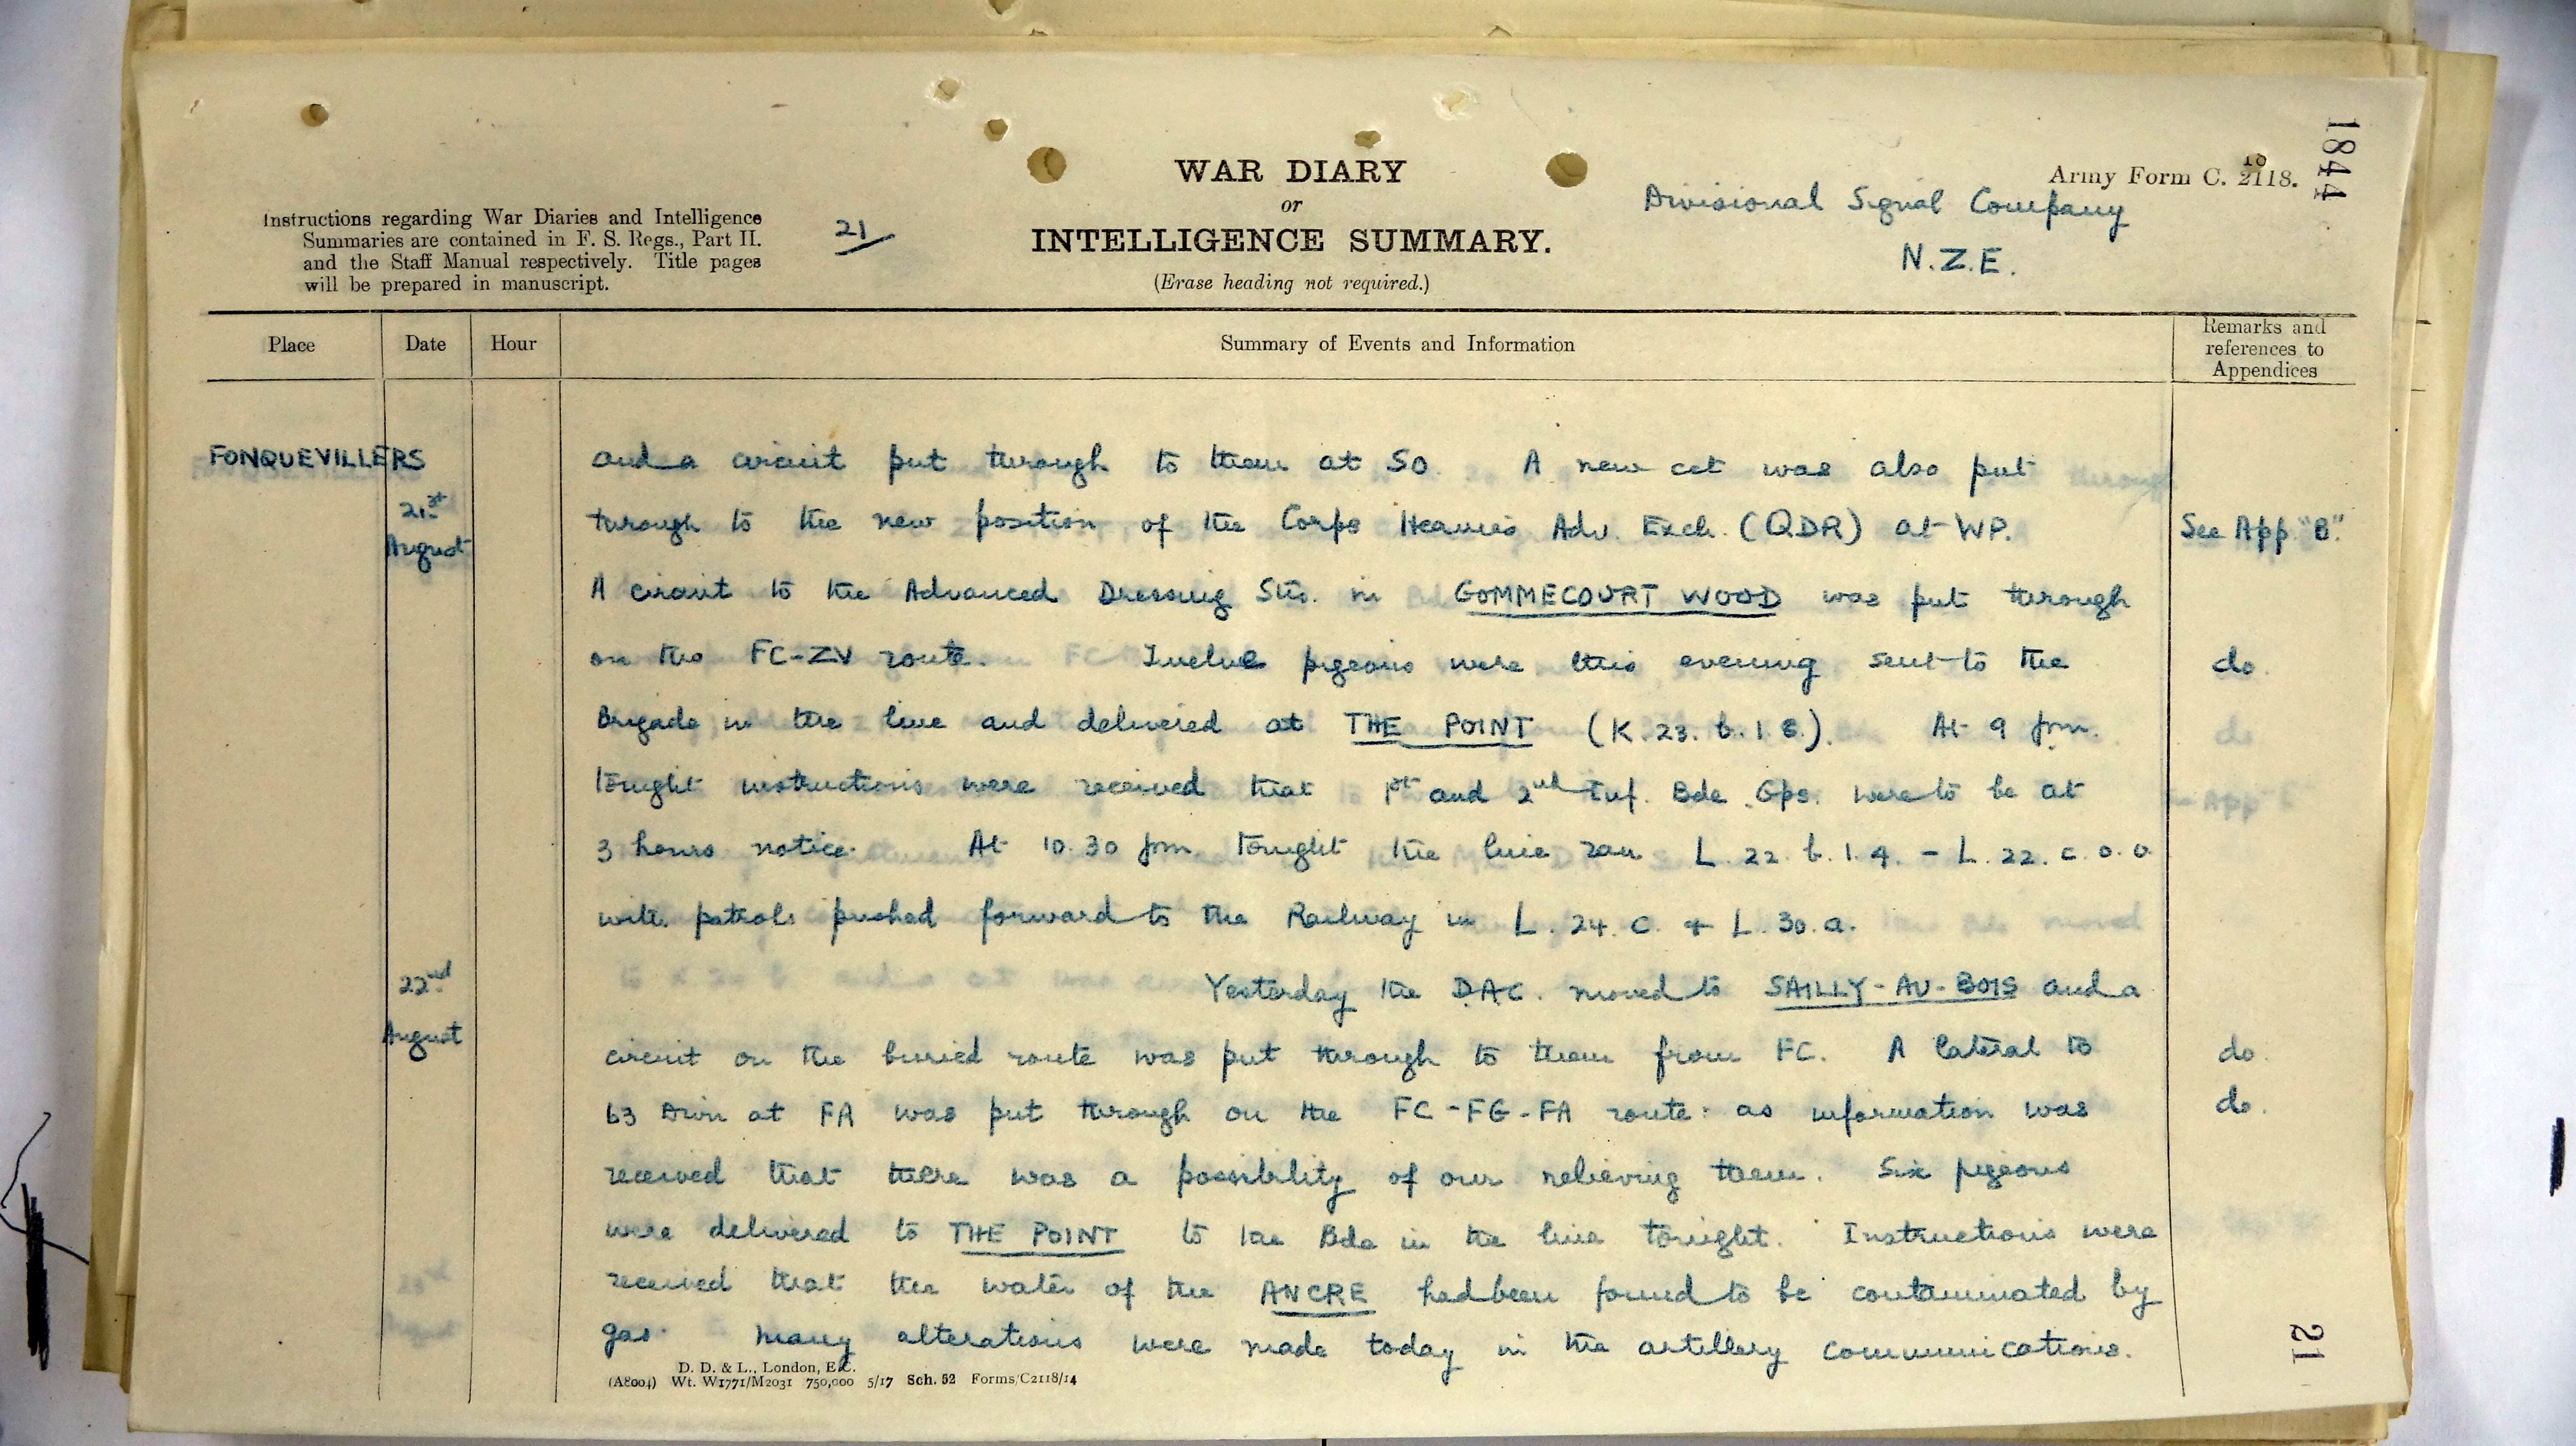 1844
Army Form C. 2118.
10
WAR DIARY
or
INTELLIGENCE SUMMARY.
(Erase heading not required.)
Instructions regarding War Diaries and Intelligence
Summaries are contained in F. S. Regs., Part II.
and the Staff Manual respectively. Title pages
will be prepared in manuscript.
21
Divisional Signal Company
N.Z.E.
Place Date Hour Summary of Events and Information Remarks and
references to
Appendices
FONQUEVILLERS
21st
August
and a circuit put through to them at SO. A new cct was also put
through to the new position of the Corps Heavies Adv. Exch. (QDR) at WP. See App. "B".
A circuit to the Advanced Dressing Stn. in GOMMECOURT WOOD was put through
on the FC-ZV route. Twelve pigeons were this evening sent to the do.
Brigade in the line and delivered at THE POINT (K.23.b.1.8.). At 9 pm.
tonight instructions were received that 1st and 2nd Inf. Bde Gps. were to be at
3 hours notice. At 10.30 pm tonight the line ran L.22.b.1.4. - L.22.c.0.0.
with patrols pushed forward to the Railway in L.24.c. & L.30.a.
22nd
August
Yesterday the D.A.C. moved to SAILLY-AU-BOIS and a
circuit on the buried route was put through to them from FC. A lateral to do.
63 Divn at FA was put through on the FC-FG-FA route: as information was do.
received that there was a possibility of our relieving them. Six pigeons
were delivered to THE POINT to the Bde in the line tonight. Instructions were
received that the water of the ANCRE had been found to be contaminated by
gas. Many alterations were made today in the artillery communications.
D. D. & L., London, E.C.
(A8004) Wt. W1771/M2031 750,000 5/17 Sch. 52 Forms/C2118/14
21